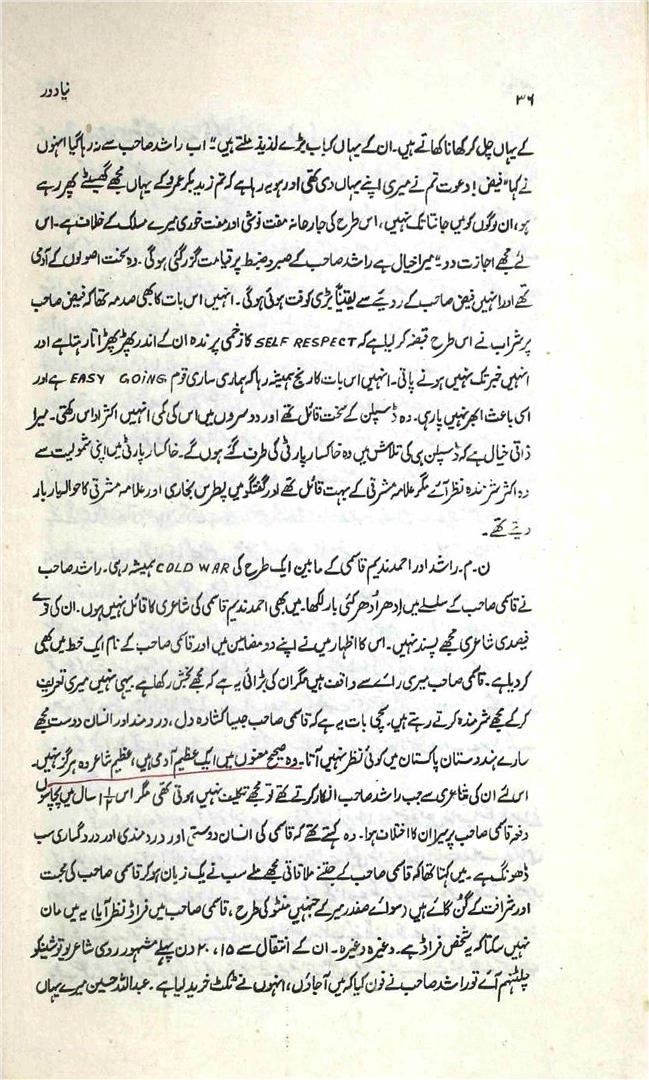 نیا دور
۳۶
کے یہاں چل کر کھانا کھاتے ہیں۔ ان کے یہاں کباب بڑے لذیذ ملتے ہیں"۔ اب راشد صاحب سے نہ رہا گیا انہوں
نے کہا "فیض! دعوت تم نے میری اپنے یہاں دی تھی اور ہو یہ رہا ہے کہ تم زید بکر عمرو کے یہاں مجھے گھسیٹے پھر رہے
ہو، ان لوگوں کو میں جانتا تک نہیں، اس طرح کی جارحانہ مفت نوشی اور مفت خوری میرے مسلک کے خلاف ہے۔ اس
لئے مجھے اجازت دو"۔ میرا خیال ہے راشد صاحب کے صبر و ضبط پر قیامت گزر گئی ہوگی۔ وہ سخت اصولوں کے آدمی
تھے اور انہیں فیض صاحب کے رویّے سے یقیناً بڑی کوفت ہوئی ہوگی۔ انہیں اس بات کا بھی صدمہ تھا کہ فیض صاحب
پر شراب نے اس طرح قبضہ کر لیا ہے کہ SELF RESPECT کا زخمی پرندہ ان کے اندر پھڑپھڑاتا رہتا ہے اور
انہیں خبر تک نہیں ہونے پاتی۔ انہیں اس بات کا رنج ہمیشہ رہا کہ ہماری ساری قوم EASY GOING ہے اور
اسی باعث ابھر نہیں پا رہی۔ وہ ڈسپلن کے سخت قائل تھے اور دوسروں میں اس کی کمی انہیں اکثر اداس رکھتی۔ میرا
ذاتی خیال ہے کہ ڈسپلن ہی کی تلاش میں وہ خاکسار پارٹی کی طرف گئے ہوں گے۔ خاکسار پارٹی میں اپنی شمولیت سے
وہ اکثر شرمندہ نظر آئے مگر علامہ مشرقی کے بہت قائل تھے اور گفتگو میں پطرس بخاری اور علامہ مشرقی کا حوالہ بار بار
دیتے تھے۔
ن۔م۔ راشد اور احمد ندیم قاسمی کے مابین ایک طرح کی COLD WAR ہمیشہ رہی۔ راشد صاحب
نے قاسمی صاحب کے سلسلے میں اِدھر اُدھر کئی بار لکھا۔ میں بھی احمد ندیم قاسمی کی شاعری کا قائل نہیں ہوں۔ ان کی
فیصدی شاعری مجھے پسند نہیں۔ اس کا اظہار میں نے اپنے دو مضامین میں اور قاسمی صاحب کے نام ایک خط میں بھی
کر دیا ہے۔ قاسمی صاحب میری رائے سے واقف ہیں مگر ان کی بڑائی یہ ہے کہ مجھے بخش رکھا ہے یہی نہیں میری تعریف
کر کے مجھے شرمندہ کرتے رہتے ہیں۔ سچی بات یہ ہے کہ قاسمی صاحب جیسا کشادہ دل، دردمند اور انسان دوست مجھے
سارے ہندوستان پاکستان میں کوئی نظر نہیں آتا۔ وہ صحیح معنوں میں ایک عظیم آدمی ہیں، عظیم شاعر وہ ہرگز نہیں۔
اس لئے ان کی شاعری سے جب راشد صاحب انکار کرتے تھے تو مجھے تکلیف نہیں ہوتی تھی مگر اس سال میں پچاسوں
دفعہ قاسمی صاحب پر میرا ان کا اختلاف ہوا۔ وہ کہتے تھے کہ قاسمی کی انسان دوستی اور دردمندی اور درد گساری سب
ڈھونگ ہے۔ میں کہتا تھا کہ قاسمی صاحب کے جتنے ملاقاتی مجھے ملے سب نے یک زبان ہو کر قاسمی صاحب کی محبت
اور شرافت کے گُن گائے ہیں (سوائے صفدر میر کے جنہیں منٹو کی طرح، قاسمی صاحب میں فراڈ نظر آیا) یہ میں مان
نہیں سکتا کہ یہ شخص فراڈ ہے۔ وغیرہ وغیرہ۔ ان کے انتقال سے ۱۵، ۲۰ دن پہلے مشہور روسی شاعر یوتوشینکو
چلٹنہم آئے تو راشد صاحب نے فون کیا کہ میں آ جاؤں، انہوں نے ٹکٹ خرید لیا ہے۔ عبداللہ حسین میرے یہاں